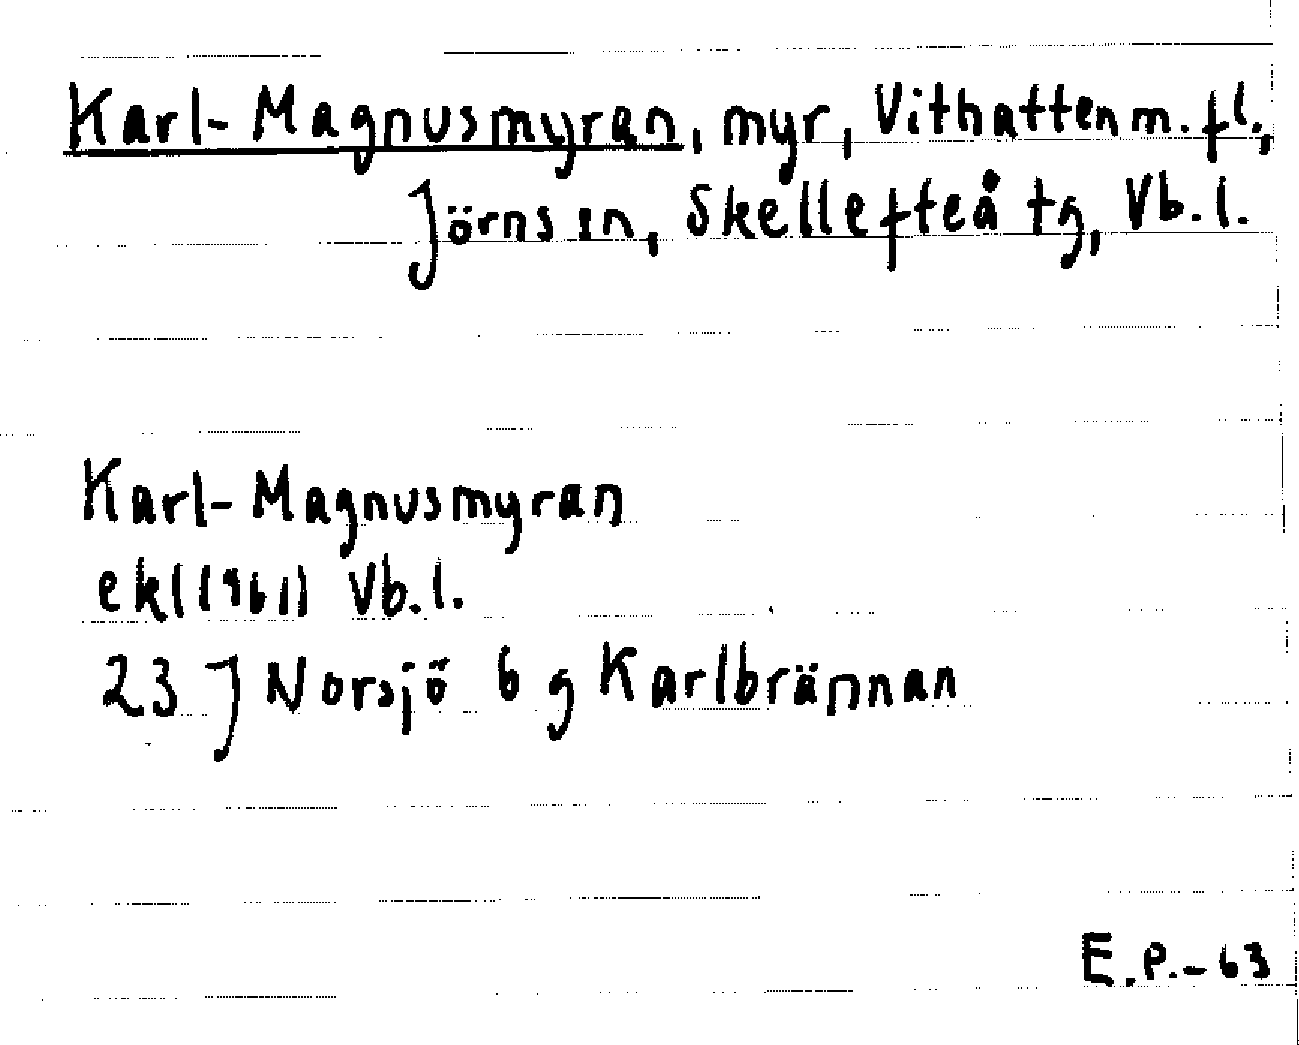 Karl-Magnusmyran, myr, Vithatten m.fl.,
Jörns sn, Skellefteå tg, Vb.l.
Karl-Magnusmyran
ekl(1961) Vb.l.
23 J Norsjö 6 g Karlbrännan
E.P.-63